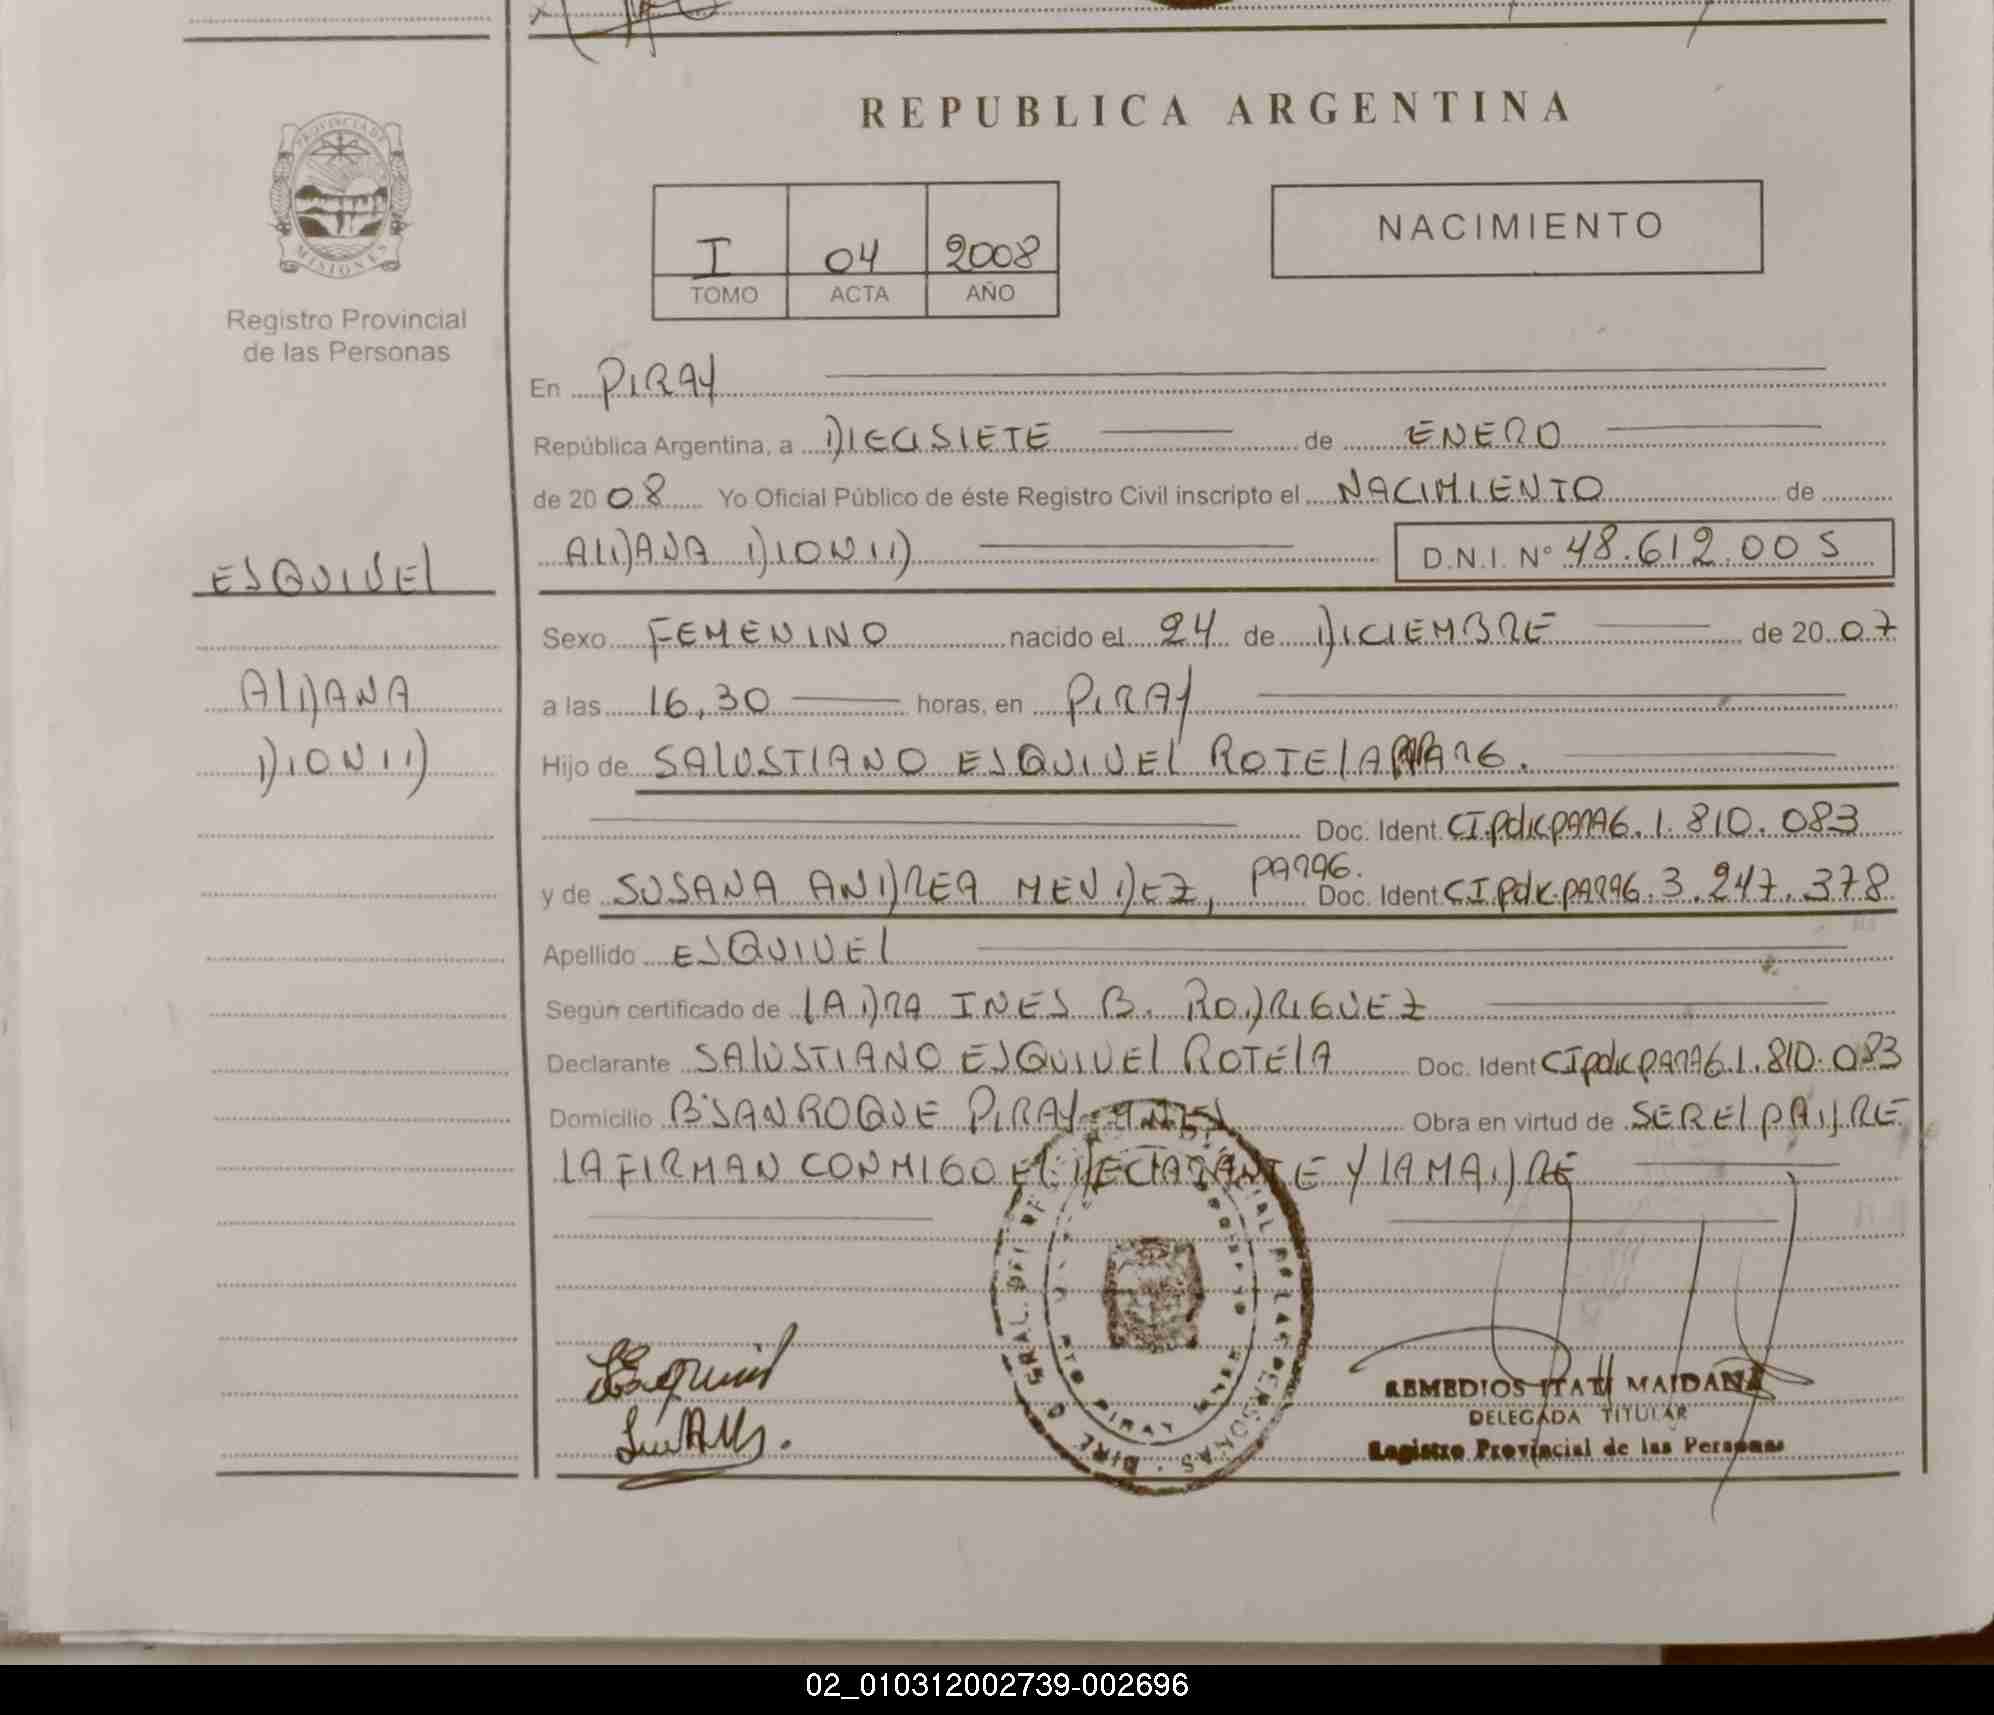 REPUBLICA ARGENTINA
PROVINCIA DE
MISIONES
Registro Provincial
de las Personas
I 04 2008
TOMO ACTA AÑO
NACIMIENTO
En PIRAY
República Argentina, a DIECISIETE de ENERO
de 20 08 Yo Oficial Público de éste Registro Civil inscripto el NACIMIENTO de
ALDANA DIONID D.N.I. Nº 48.612.005
ESQUIVEL
ALDANA
DIONID
Sexo FEMENINO nacido el 24 de DICIEMBRE de 20 07
a las 16,30 horas, en PIRAY
Hijo de SALUSTIANO ESQUIVEL ROTELA PARAG.
Doc. Ident. CI.Pdk.PARAG. 1.810.083
y de SUSANA ANDREA MENDEZ, PARAG. Doc. Ident CI.Pdk.PARAG. 3.247.378
Apellido ESQUIVEL
Según certificado de LA DRA INES B. RODRIGUEZ
Declarante SALUSTIANO ESQUIVEL ROTELA Doc. Ident CI Pdk PARAG. 1.810.083
Domicilio Bº SAN ROQUE PIRAY Obra en virtud de SER EL PADRE
LA FIRMAN CONMIGO EL DECLARANTE Y LA MADRE
REMEDIOS ITATI MAIDANA
DELEGADA TITULAR
Registro Provincial de las Personas
02_010312002739-002696